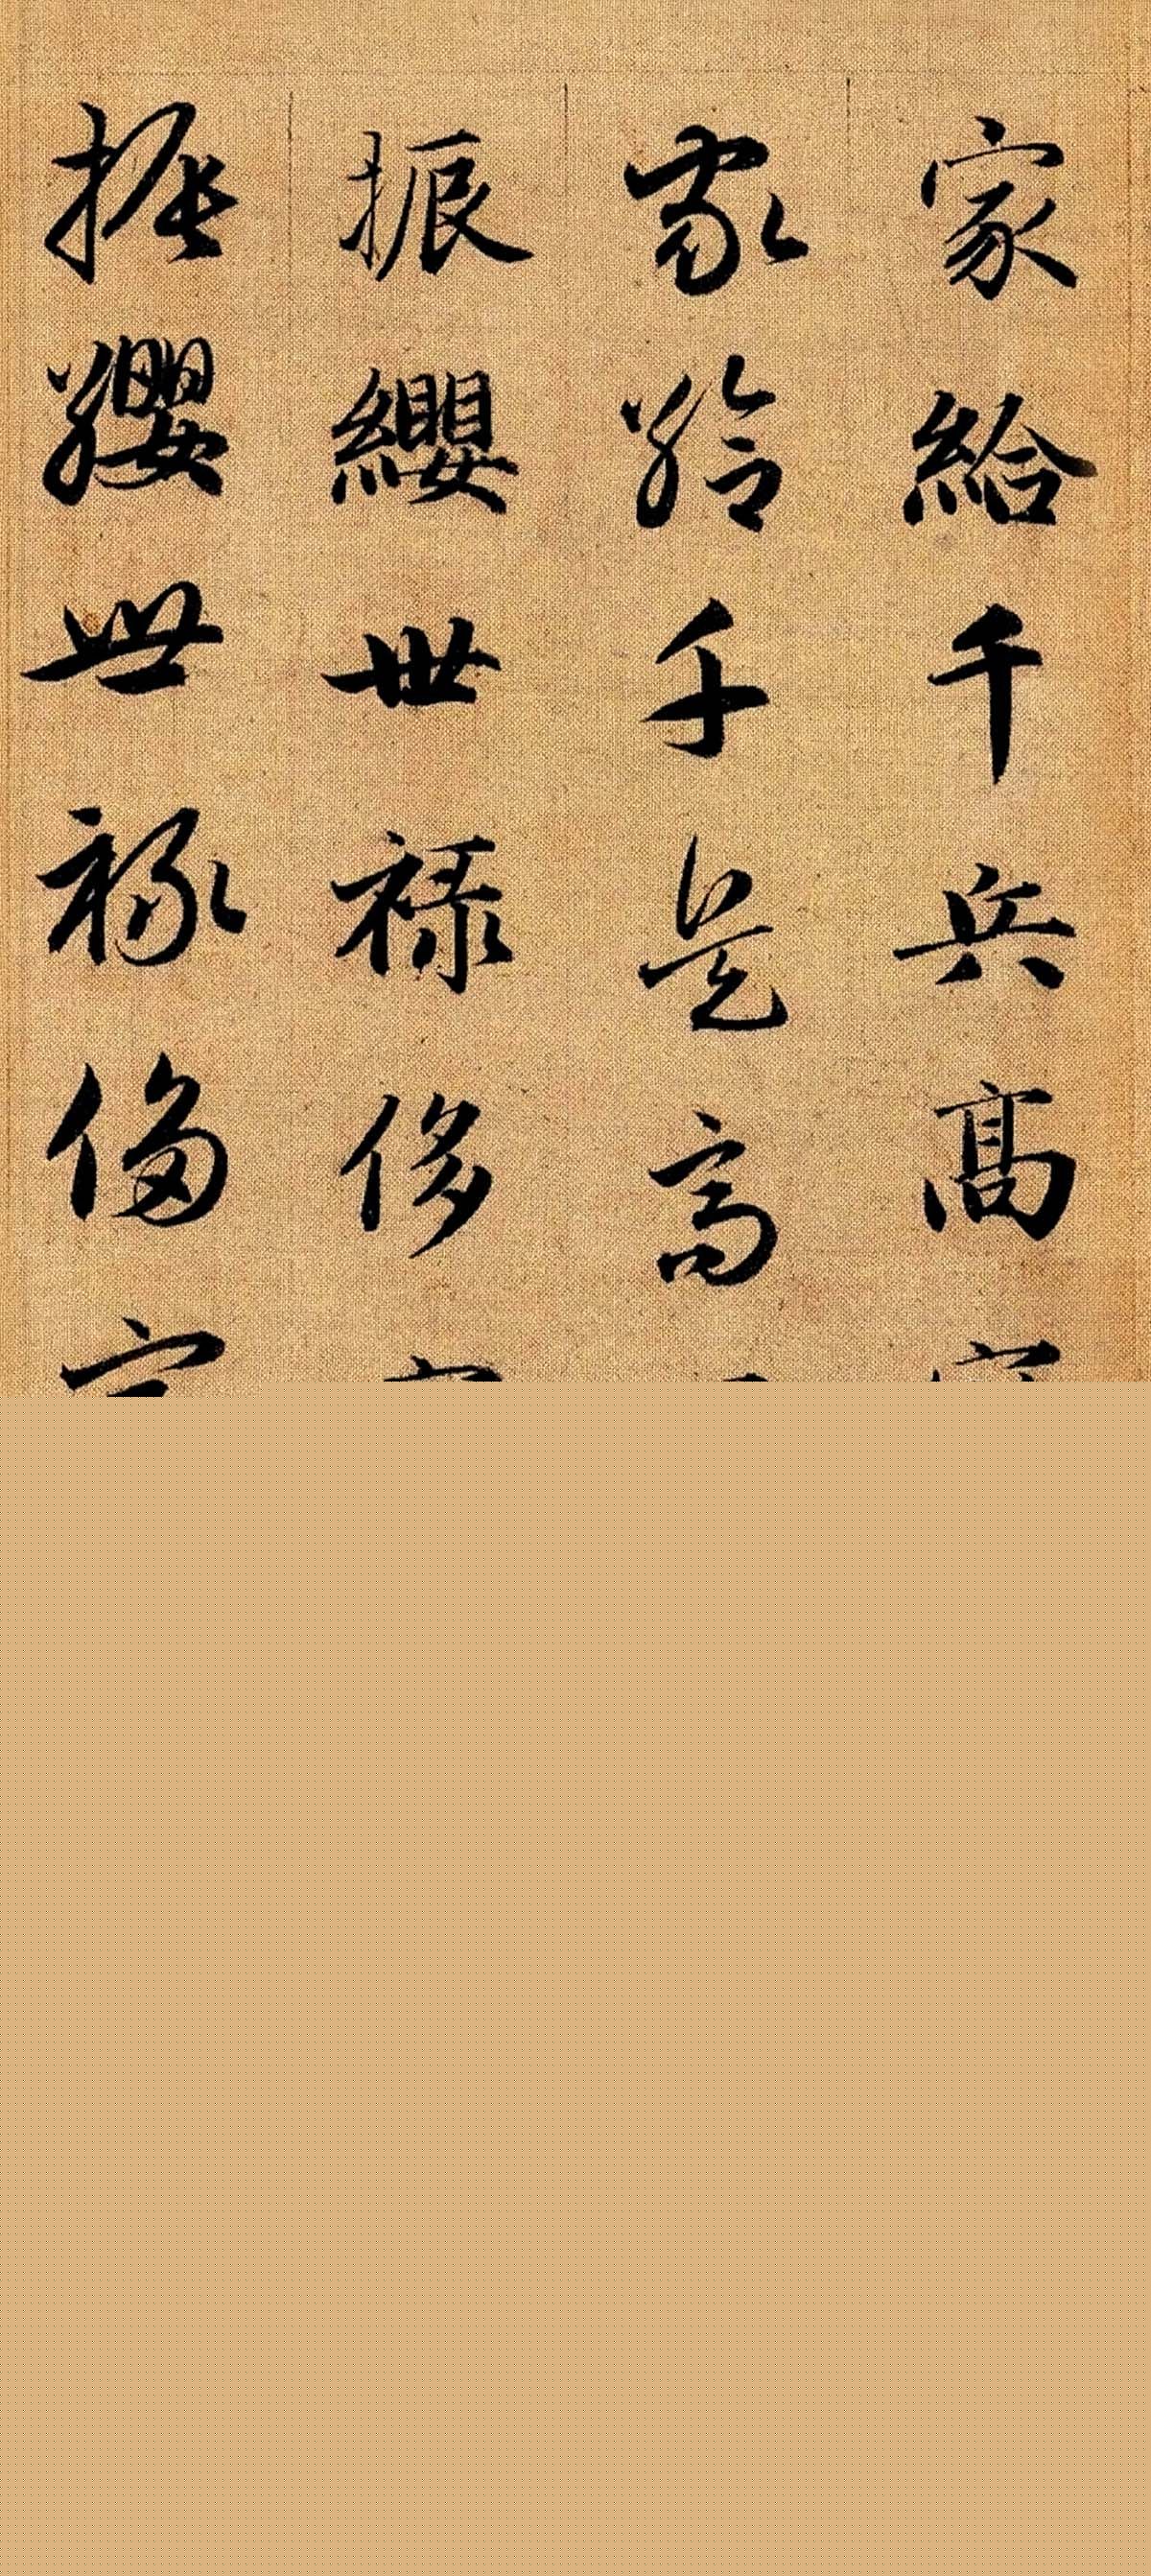 家給千兵高
家給千兵高
振纓世祿侈
振纓世祿侈